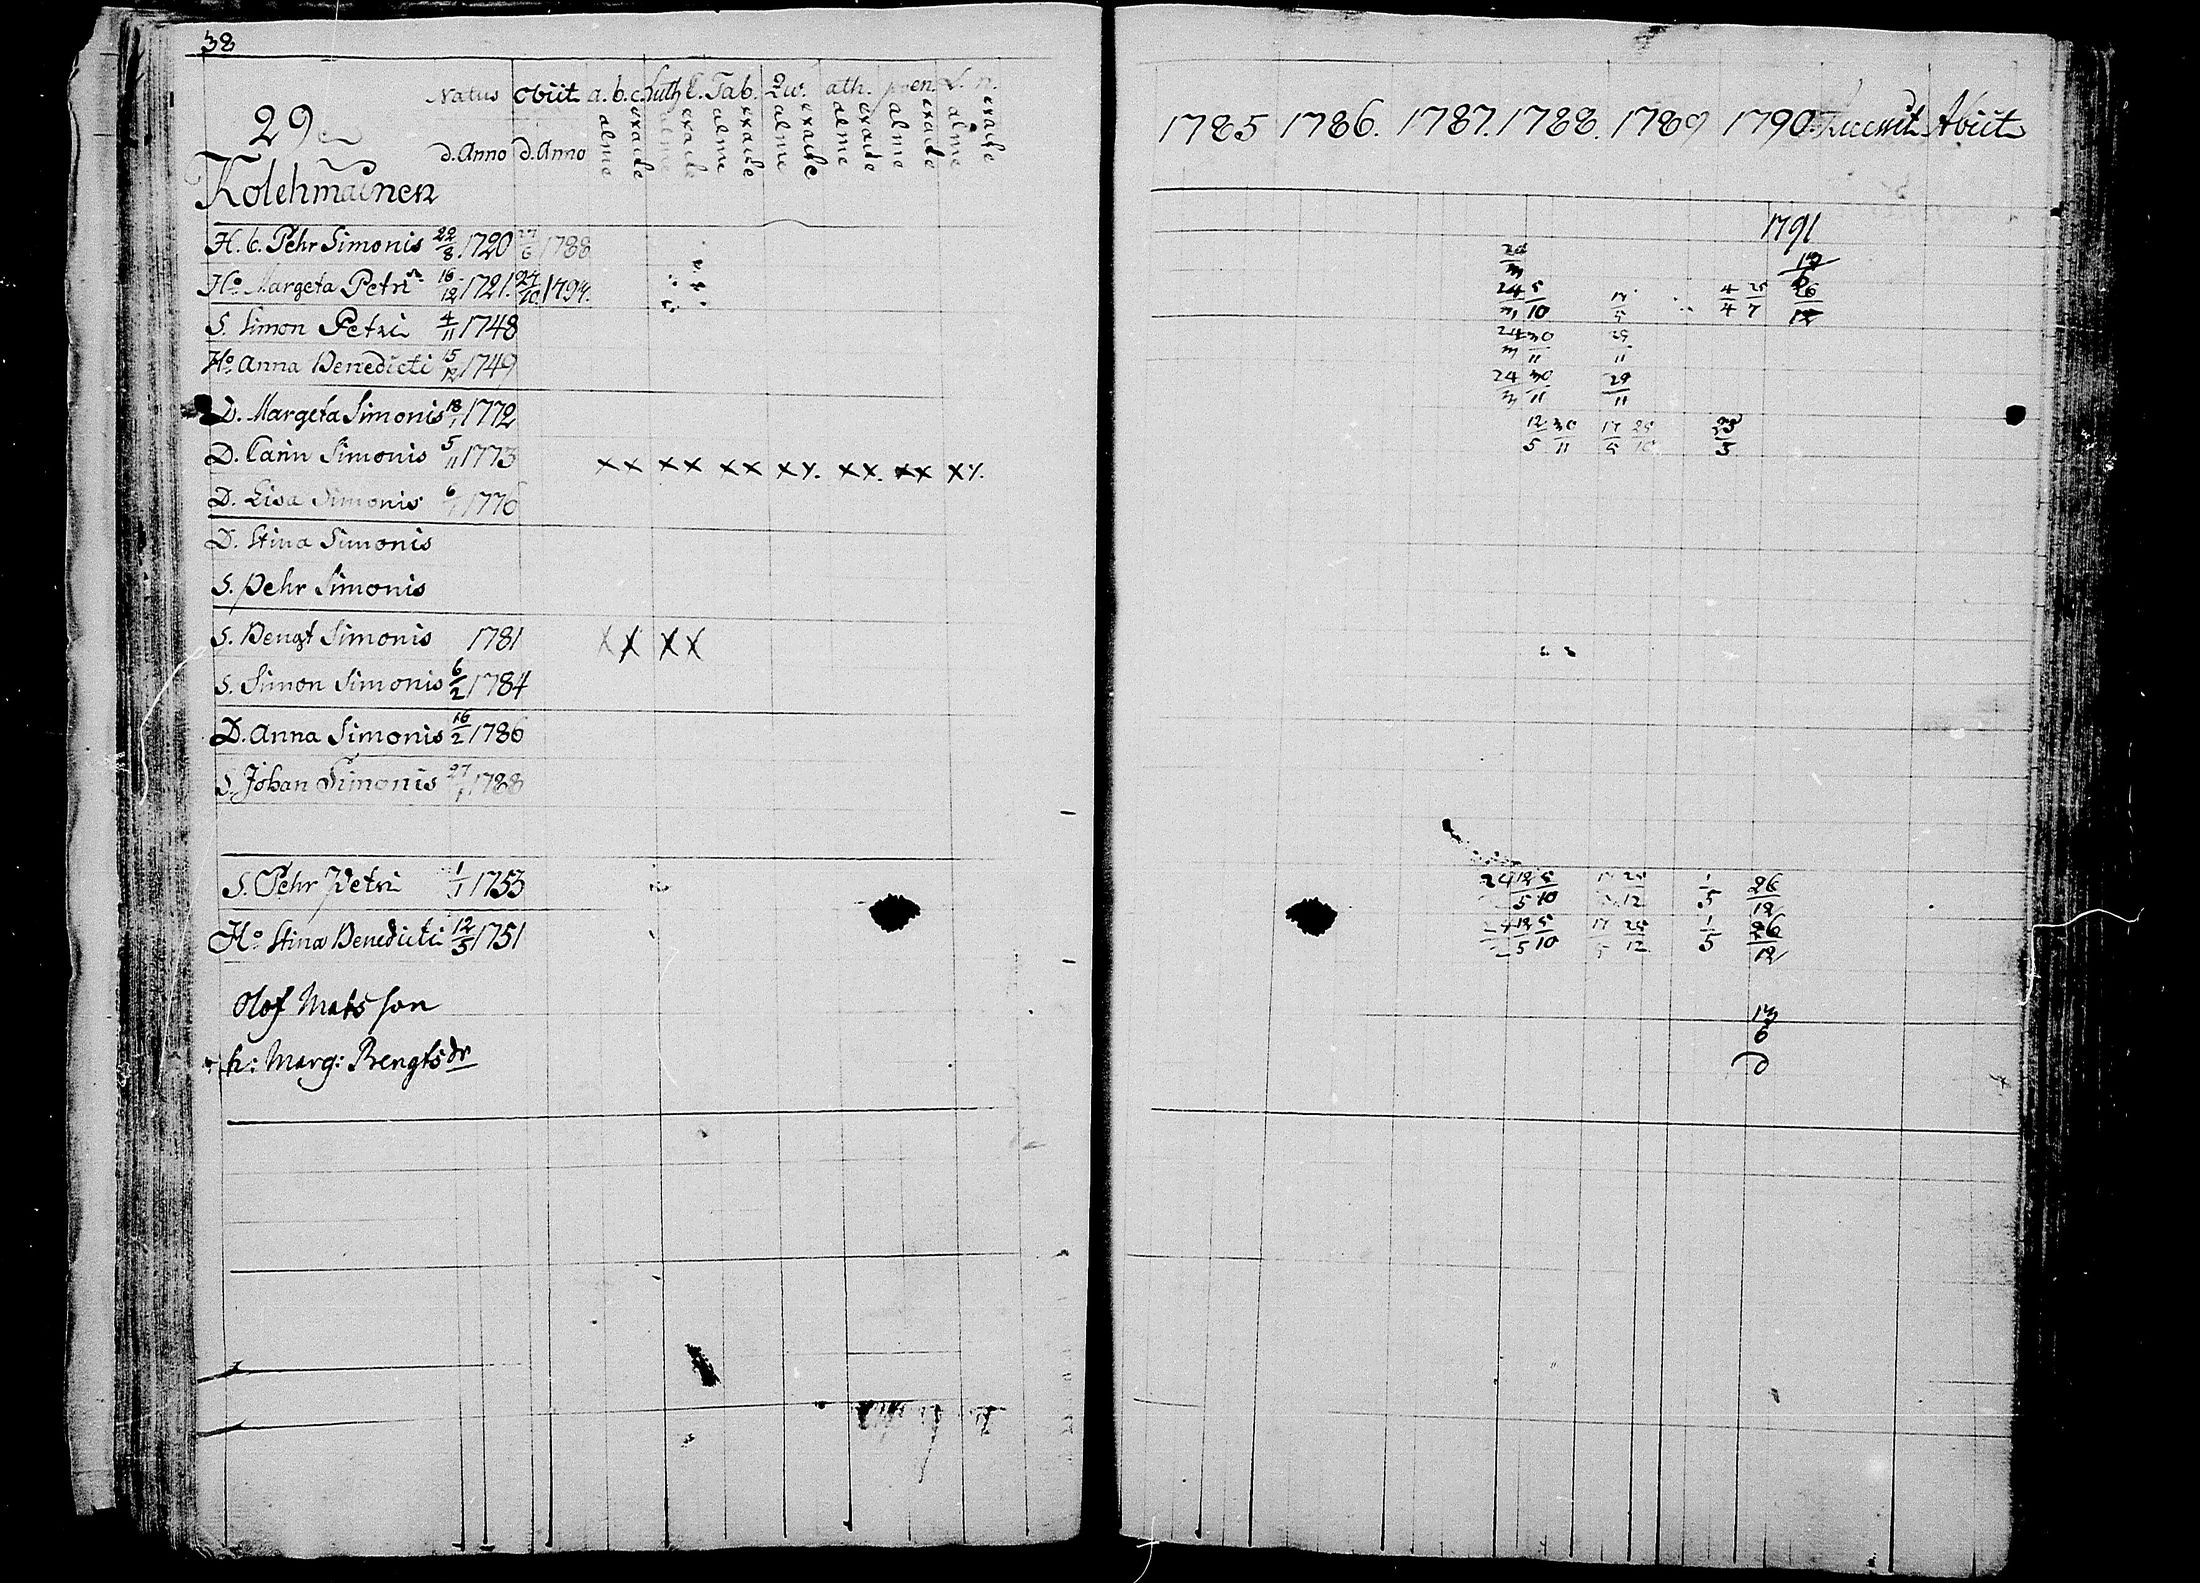 38
Natus obiit a.b.c. Luth. C. Tab. Qw. ath. L. n.
29
d. Anno d. Anno alme exacte alme exacte alme exacte alme exacte alme exacte alme exacte alme exacte
Kolehmainen
H. b. Pehr Simonis 22/8 1720 27/6 1788
Ho Margeta Petri 16/12 1721. 24/10 1794.
S. Simon Petri 4/11 1748
Ho. Anna Benedicti 15/12 1749
D. Margeta Simonis 18/1 1772
D. Carin Simonis 5/11 1773 x x x x x x x x. x x. x x x x.
D. Lisa Simonis 6/1 1776
D. Stina Simonis
S. Pehr Simonis
S. Bengt Simonis 1781 x x x x
S. Simon Simonis 6/2 1784
D. Anna Simonis 16/2 1786
S. Johan Simonis 27/1 1788
S. Pehr Petri 1/1 1753
Ho Stina Benedicti 12/5 1751
Olof Matsson
h: Marg: Bengtsdr
1785 1786. 1787. 1788. 1789 1790 Abiit
1791
24/3 13/6
24/3 5/10 4/4 25/7 26/12
24/3 30/11 29/11
24/3 30/11 29/11
12/5 30/11 17/5 25/10
24 12/5 5/10 17 25/12 1/5 26/12
24 12/5 5/10 17/5 25/12 1/5 26/12
13/6